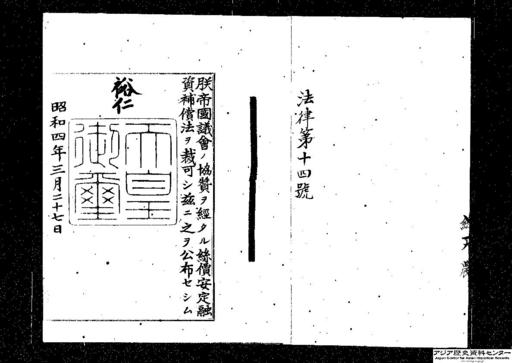 法律第十四號
朕帝國議會ノ協贊ヲ經タル絲價安定融
資補償法ヲ裁可シ茲ニ之ヲ公布セシム
裕仁
天皇
御璽
昭和四年三月二十七日
アジア歴史資料センター
Japan Center for Asian Historical Records